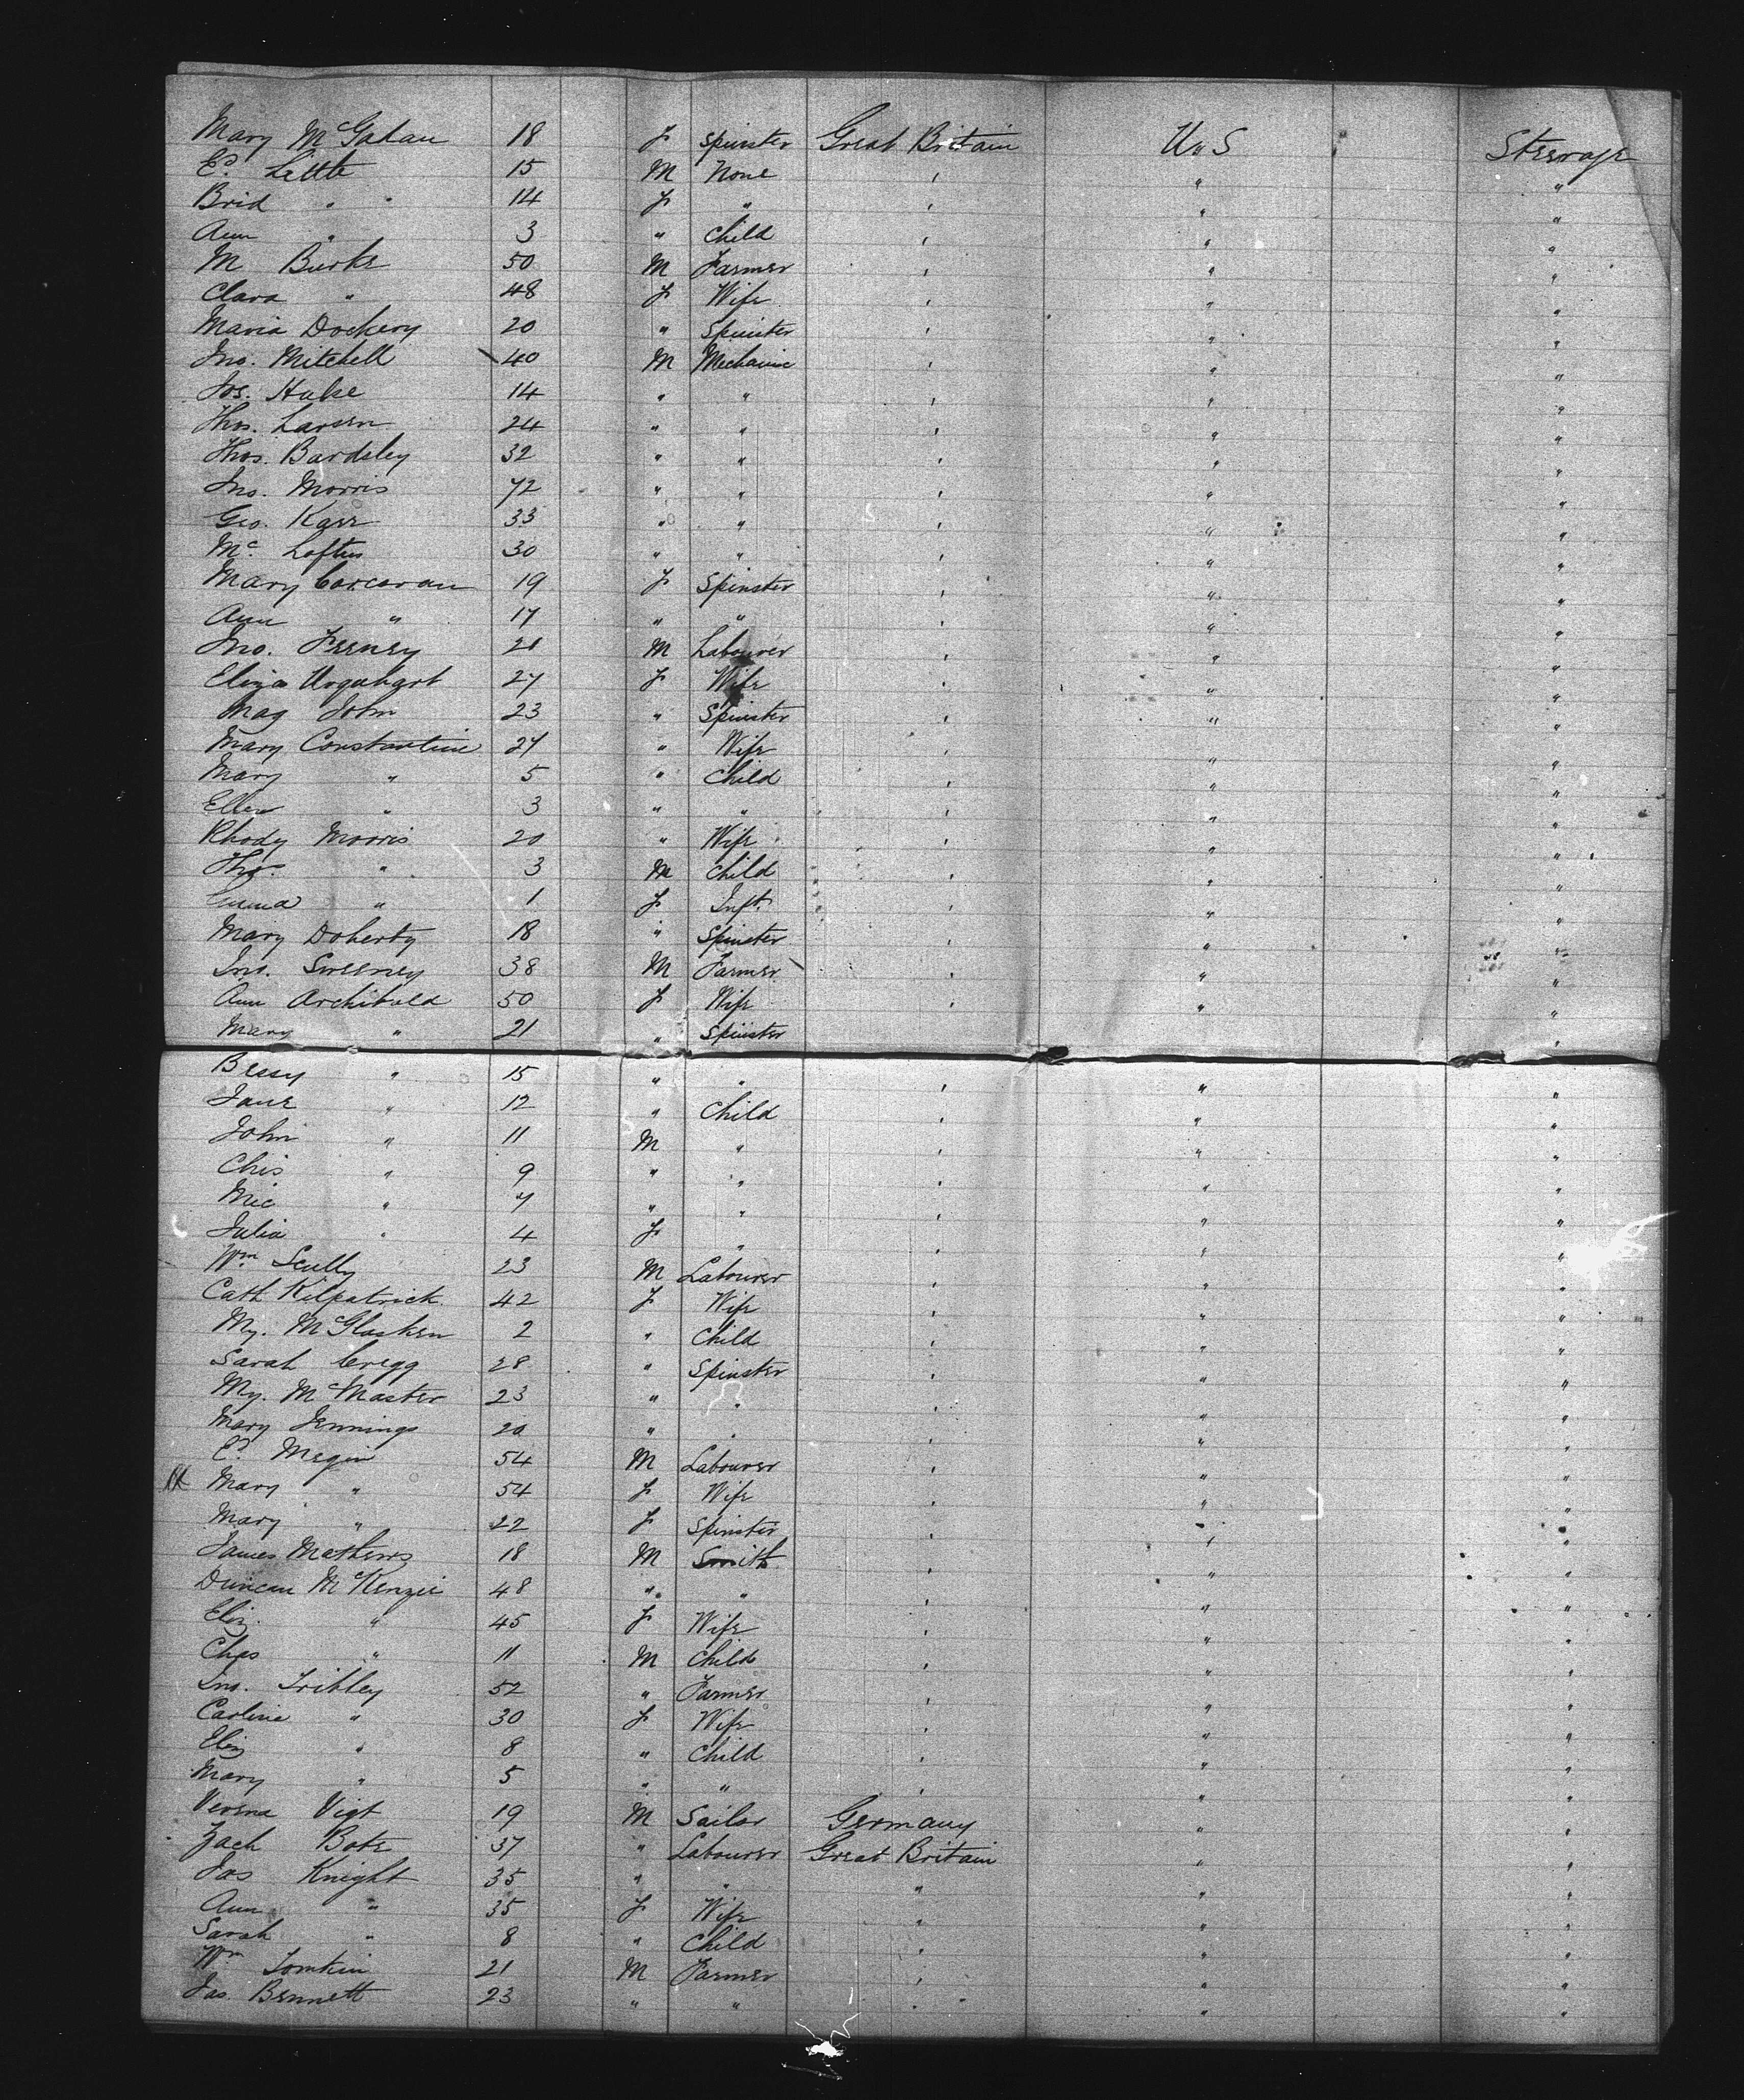 Mary McGadan 18 F Spinster Great Britain U.S Steerage
Ed. Little 15 M None " " "
Brid " " 14 F " " " "
Ann " 3 " Child " " "
M Burke 50 M Farmer " " "
Clara " 48 F Wife " " "
Maria Dockery 20 " Spinster " " "
Jno. Mitchell 40 M Mechanic " " "
Jos. Hulse 14 " " " " "
Thos. Larsen 24 " " " " "
Thos. Bardsley 32 " " " " "
Jno. Morris 72 " " " " "
Geo. Karr 33 " " " " "
Mc. Loftus 30 " " " " "
Mary Corcoran 19 F Spinster " " "
Ann " 17 " " " " "
Jno. Feeney 20 M Labourer " " "
Eliza Urquhart 27 F Wife " " "
Mag John 23 " Spinster " " "
Mary Constantine 27 " Wife " " "
Mary " 5 " Child " " "
Ellen " 3 " " " " "
Rhody Morris 20 " Wife " " "
Tho. " 3 M Child " " "
Emma " 1 F Inft. " " "
Mary Doherty 18 " Spinster " " "
Jno. Sweeney 38 M Farmer " " "
Ann Archibald 50 F Wife " " "
Mary " 21 " Spinster "
Bessy " 15 " " " " "
Jane " 12 " Child " " "
John " 11 M " " " "
Chis " 9 " " " " "
Mic " 7 " " " " "
Julia " 4 F " " " "
Wm Scully 23 M Labourer " " "
Cath Kilpatrick 42 F Wife " " "
My. McGlosken 2 " Child " " "
Sarah Cregg 28 " Spinster " " "
My. McMaster 23 " " " " "
Mary Jennings 20 " " " " "
Ed. Megin 54 M Labourer " " "
Mary " 54 F Wife " " "
Mary " 22 F Spinster " " "
James Mathews 18 M Smith " " "
Duncan McKenzie 48 " " " " "
Eliz. " 45 F Wife " " "
Chas " 11 M Child " " "
Jno. Tribley 52 " Farmer " " "
Carline " 30 F Wife " " "
Eliz " 8 " Child " " "
Mary " 5 " " " " "
Verena Vigt 19 M Sailor Germany " "
Zach Bate 37 " Labourer Great Britain " "
Jas Knight 35 " " " " "
Ann " 35 F Wife " " "
Sarah " 8 " Child " " "
Wm Tomkin 21 M Farmer " " "
Jas. Bennett 23 " " " " "